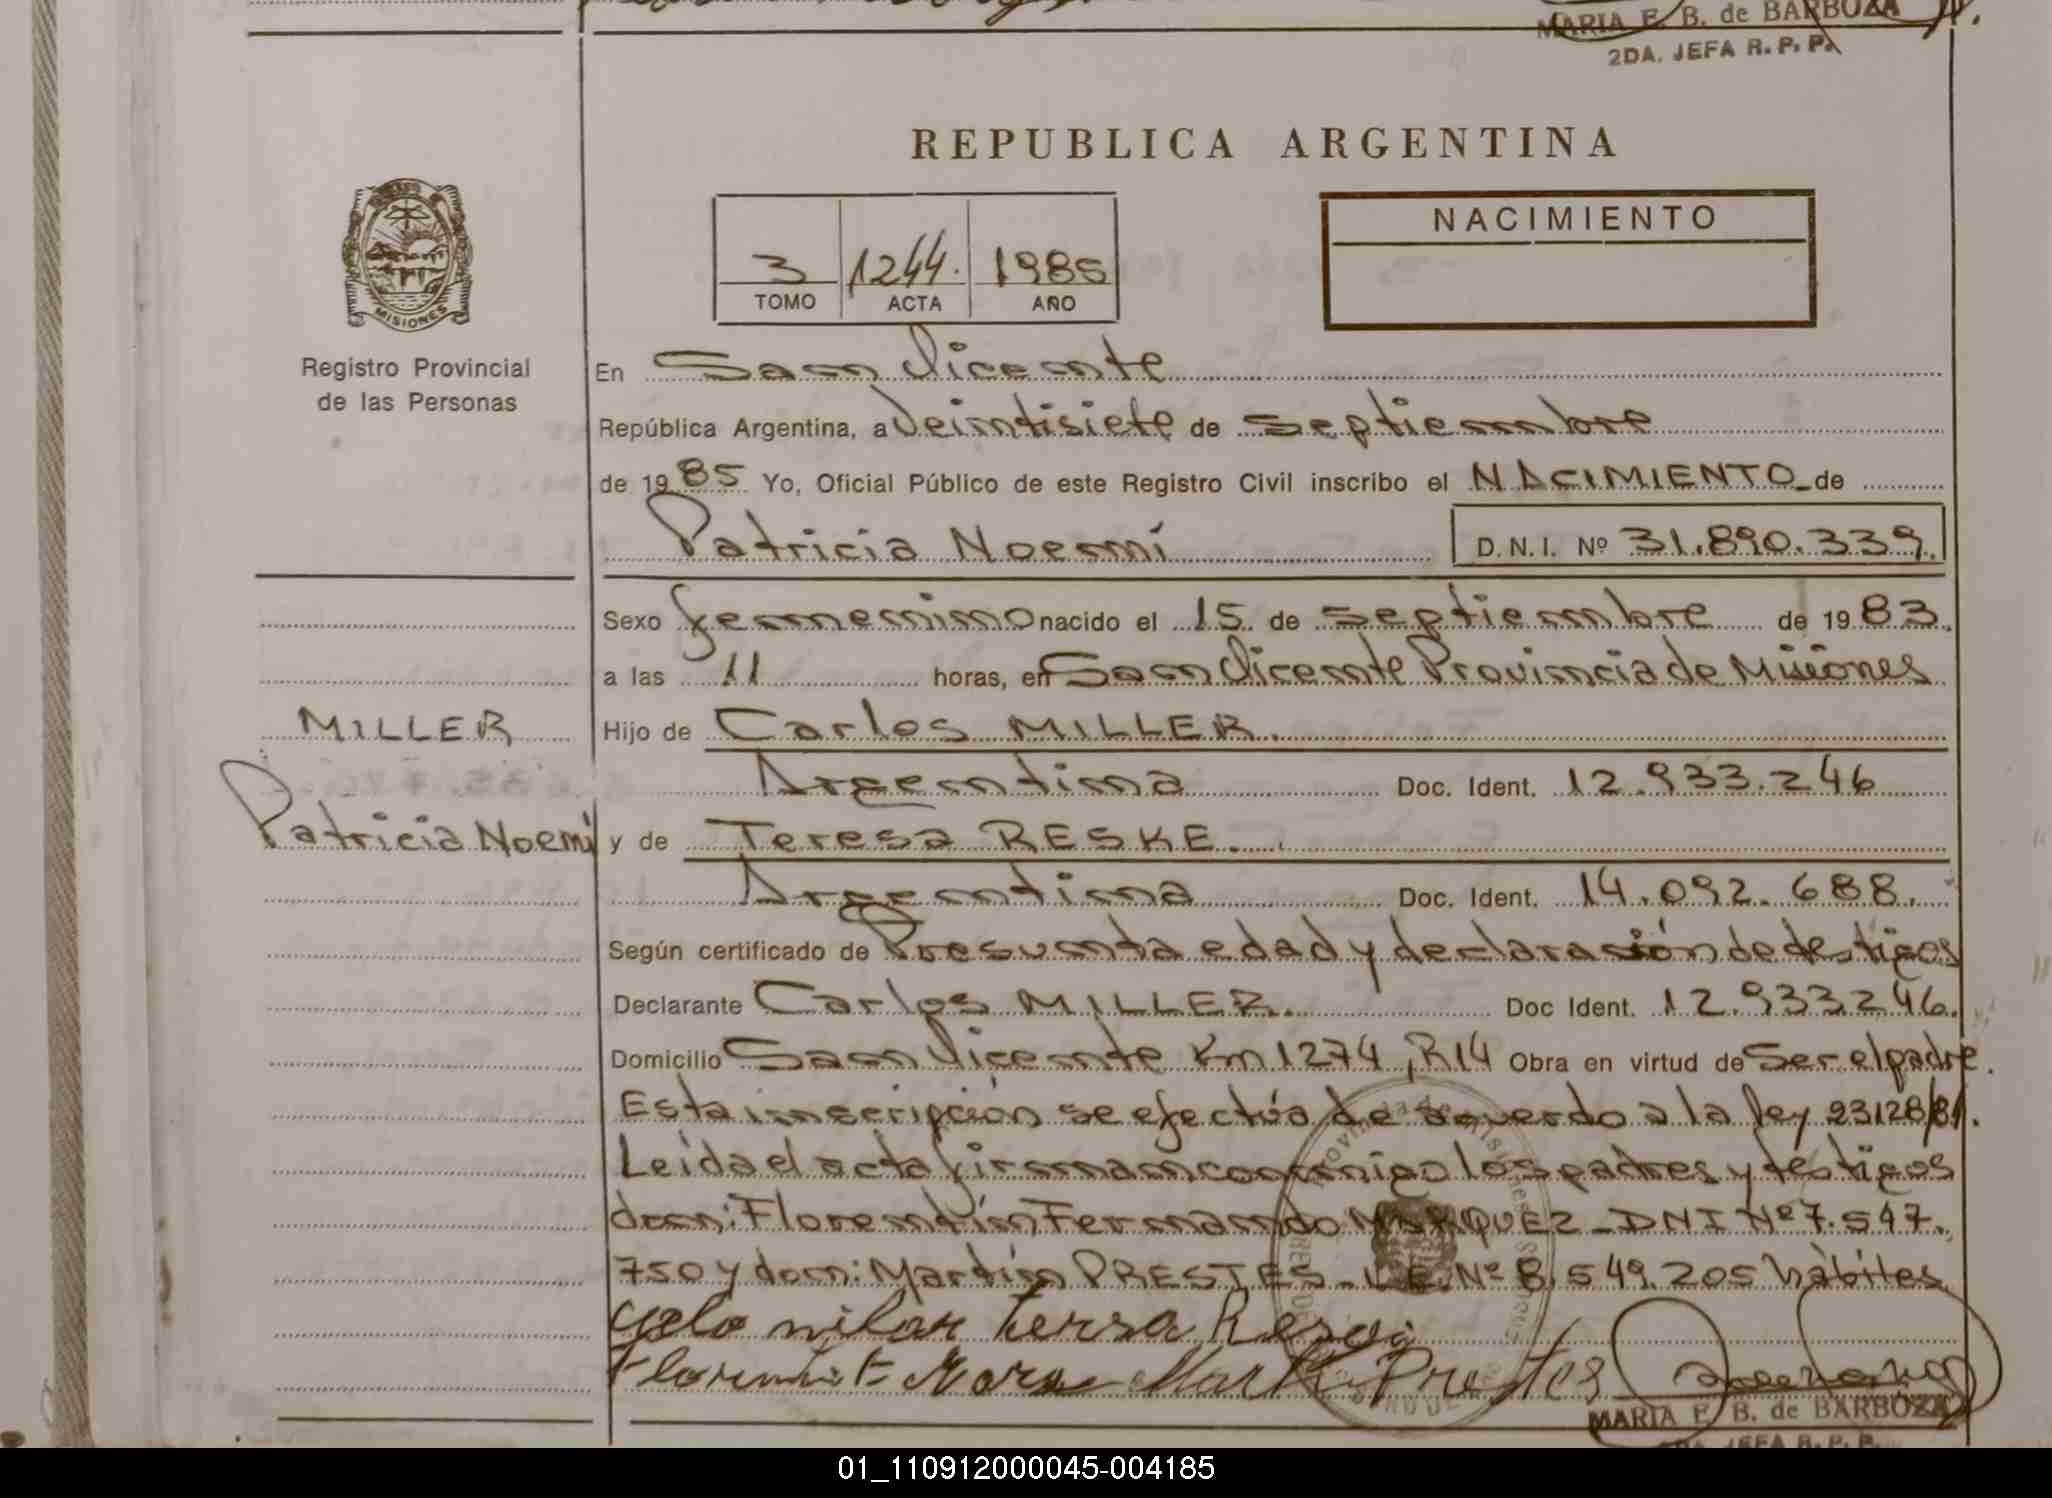 MARIA E. B. de BARBOZA
2DA. JEFA R. P. P.
REPUBLICA ARGENTINA
NACIMIENTO
3 1244. 1985
TOMO ACTA AÑO
MISIONES
Registro Provincial
de las Personas
En San Vicente
República Argentina, a Veintisiete de septiembre
de 1985 Yo, Oficial Público de este Registro Civil inscribo el NACIMIENTO de
Patricia Noemí D.N.I. Nº 31.890.339.
Sexo femenino nacido el 15 de septiembre de 1983.
a las 11 horas, en San Vicente Provincia de Misiones
MILLER
Hijo de Carlos MILLER.
Argentina Doc. Ident. 12.933.246
Patricia Noemí
y de Teresa RESKE.
Argentina Doc. Ident. 14.092.688.
Según certificado de Presunta edad y declarasión de testigos
Declarante Carlos MILLER. Doc Ident. 12.933246.
Domicilio San Vicente Km 1274, R14 Obra en virtud de Ser el padre.
Esta inscripción se efectúa de acuerdo a la ley 23128/84.
Leida el acta firman conmigo los padres y testigos
don: Florentín Fernando MARQUEZ - DNI Nº 7.547.
750 y don: Martín PRESTES - L.E. Nº 8.549.205 hábiles
Martin Prestes
MARIA E. B. de BARBOZA
2DA. JEFA R. P. P.
01_110912000045-004185